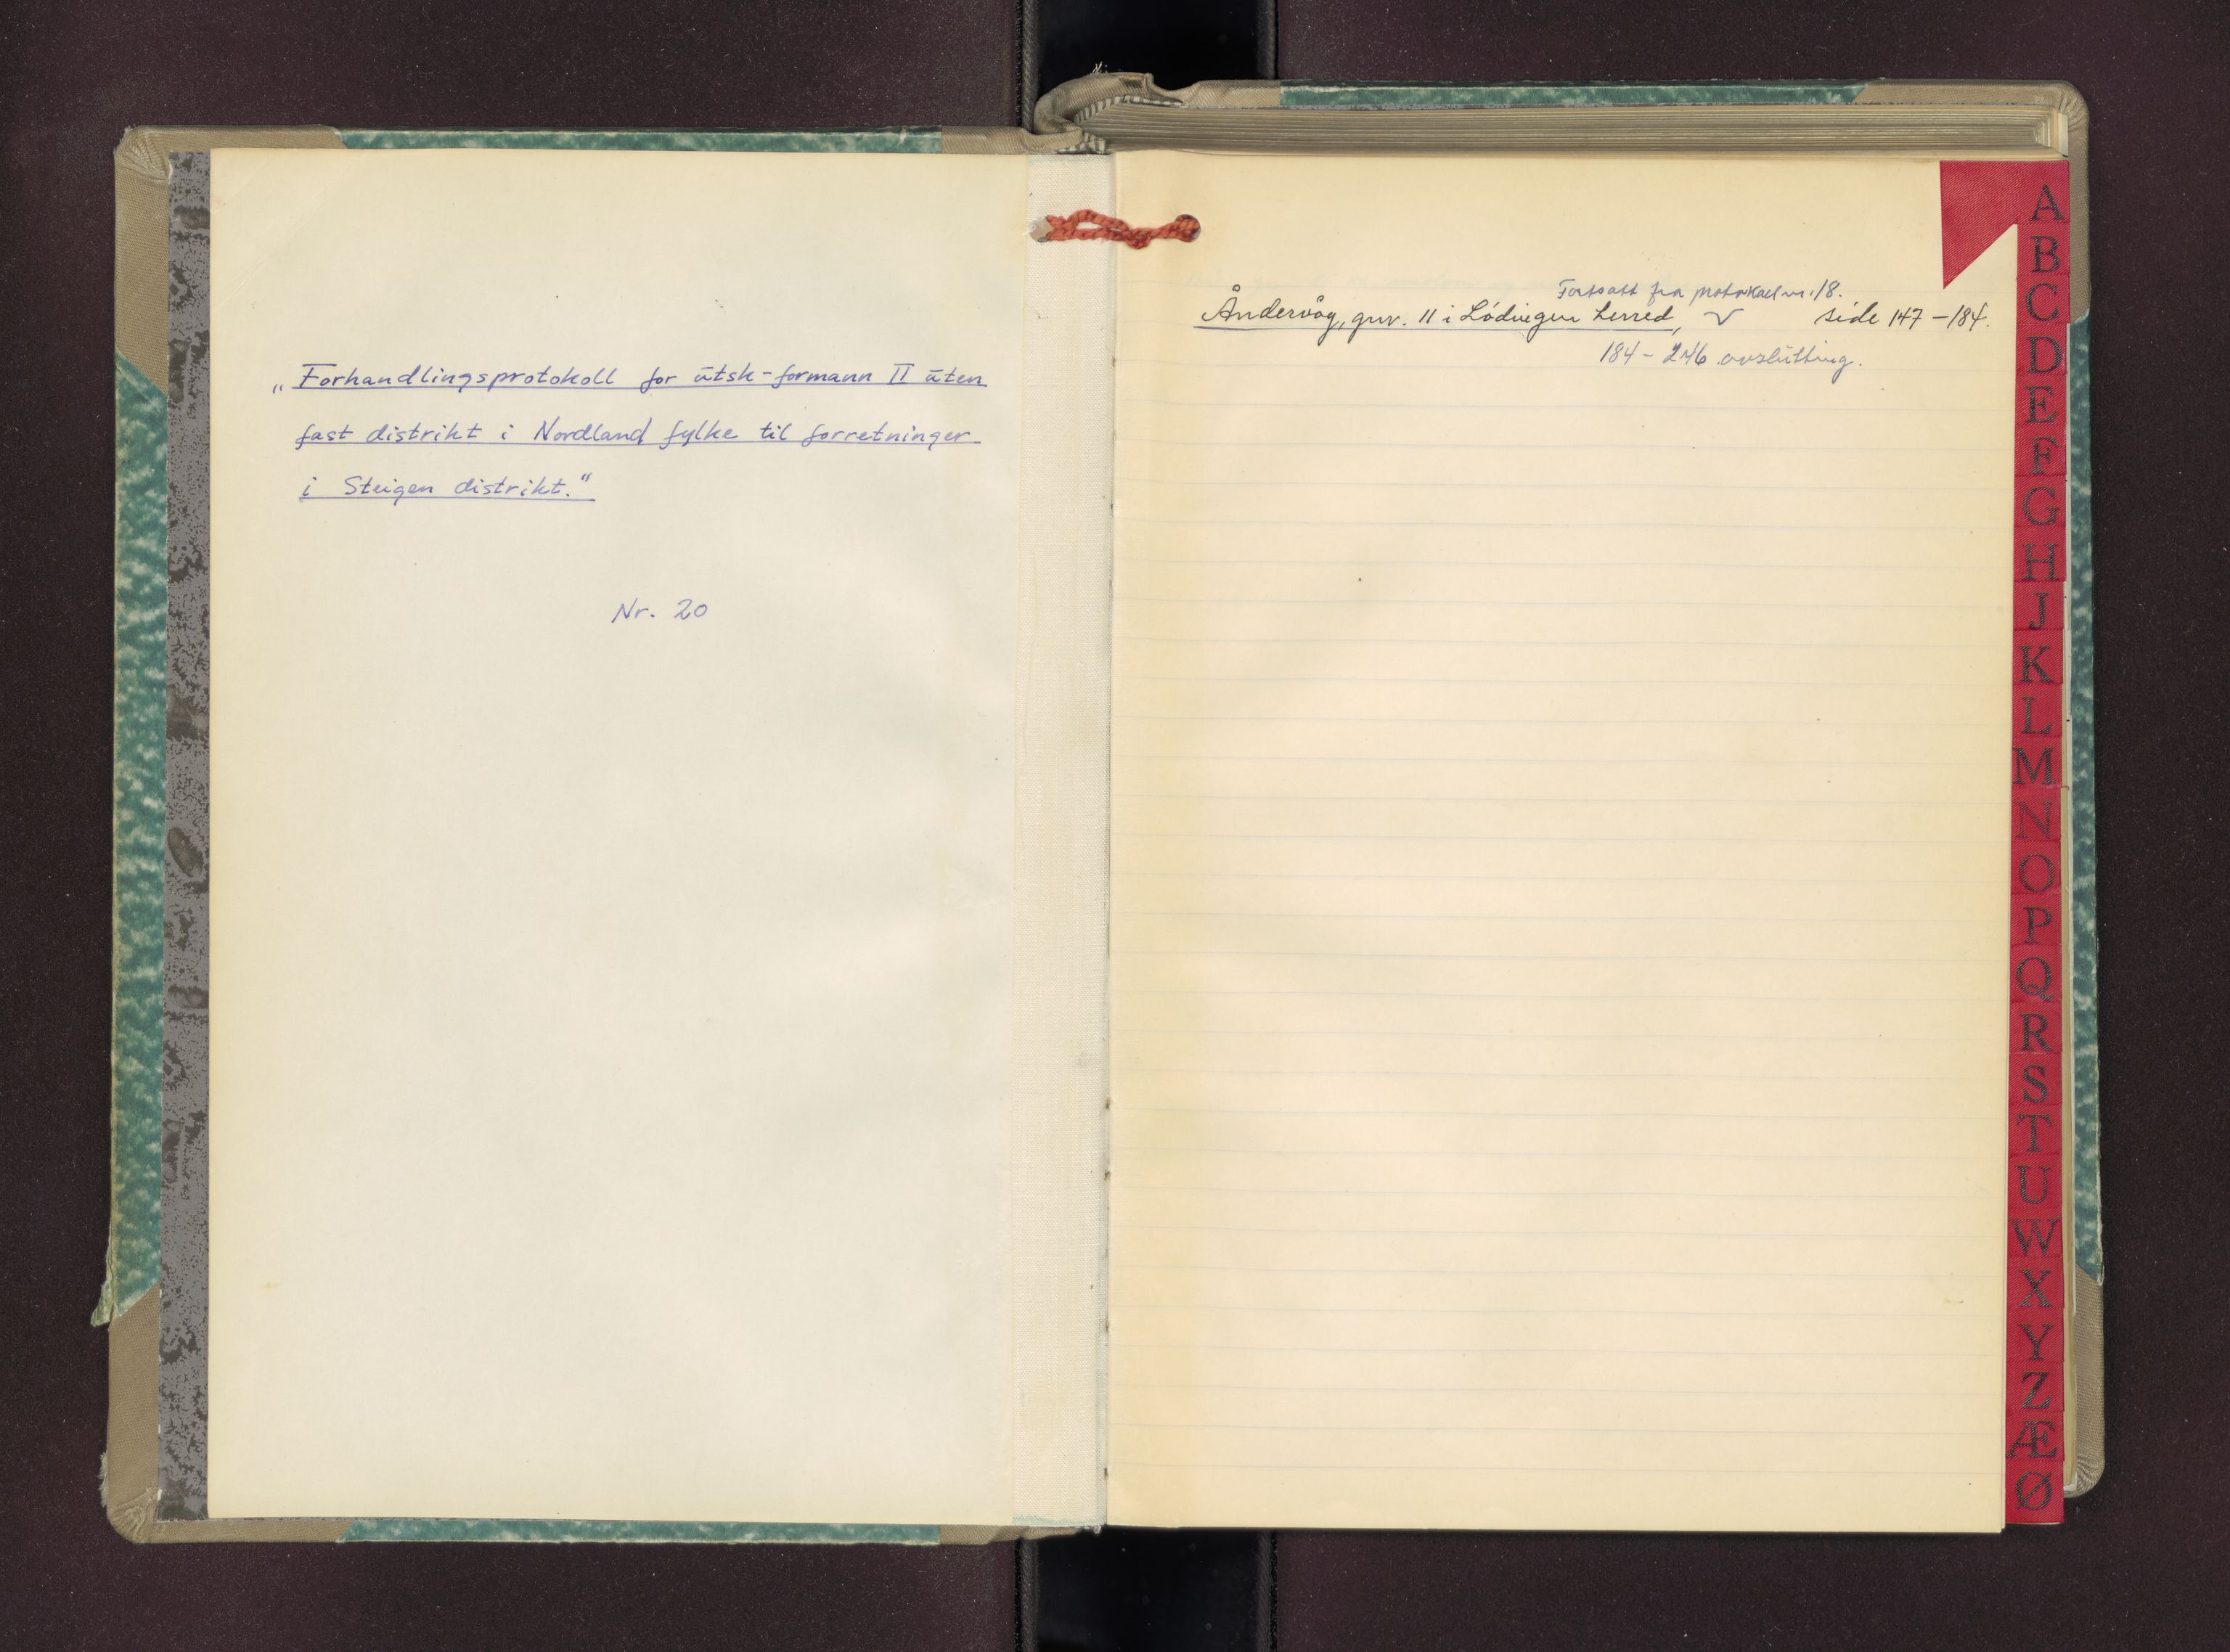 „Forhandlingsprotokoll for ūtsk-formann II ūten
fast distrikt i Nordland fylke til forretninger
i Steigen distrikt."
Nr. 20
Fortsatt fra protokoll nr. 18.
Åndervåg, gnr. 11 i Lódingen herred, side 147 - 184.
184 - 246 avslūtting.
A
B
C
D
E
F
G
H
J
K
L
M
N
O
P
Q
R
S
T
U
W
X
Y
Z
Æ
Ø